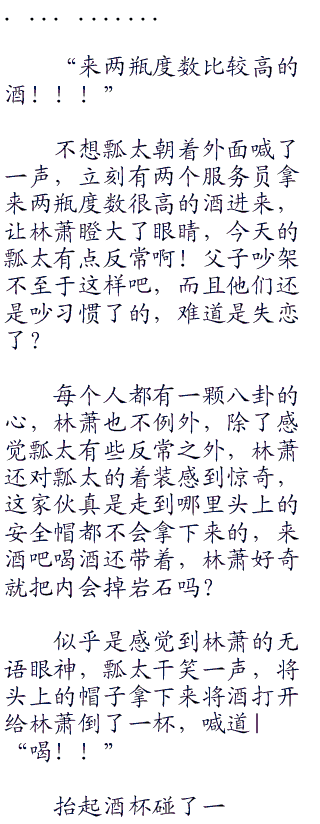 . ... .......
“来两瓶度数比较高的
酒！！！”
不想瓢太朝着外面喊了
一声，立刻有两个服务员拿
来两瓶度数很高的酒进来，
让林萧瞪大了眼睛，今天的
瓢太有点反常啊！父子吵架
不至于这样吧，而且他们还
是吵习惯了的，难道是失恋
了？
每个人都有一颗八卦的
心，林萧也不例外，除了感
觉瓢太有些反常之外，林萧
还对瓢太的着装感到惊奇，
这家伙真是走到哪里头上的
安全帽都不会拿下来的，来
酒吧喝酒还带着，林萧好奇
就把内会掉岩石吗？
似乎是感觉到林萧的无
语眼神，瓢太干笑一声，将
头上的帽子拿下来将酒打开
给林萧倒了一杯，喊道|
“喝！！”
抬起酒杯碰了一